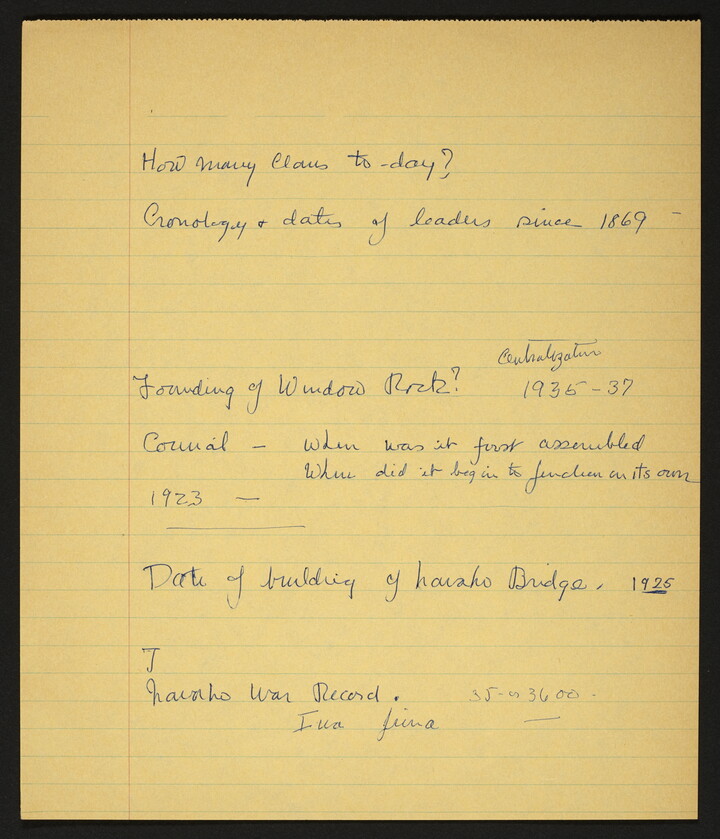 How many Clans to-day?
Cronology + dates of leaders since 1869 -
Centralization
Founding of Window Rock? 1935-37
Council - When was it first assembled
When did it begin to function on its own
1923 -
Date of building of Navaho Bridge. 1925
T
Navaho War Record. 35- or 3600 -
Iwa Jima